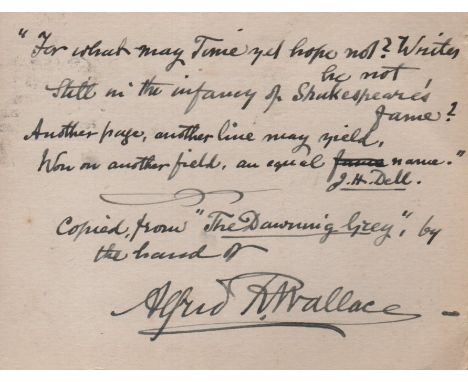 "For what may Time yet hope not? Writes
he not,
Still in the infancy of Shakespeare's
fame?
Another page, another line may yield,
Won on another field, an equal fame name."
J. H. Dell.
Copied, from "The Dawning Grey", by
the hand of
Alfred R. Wallace